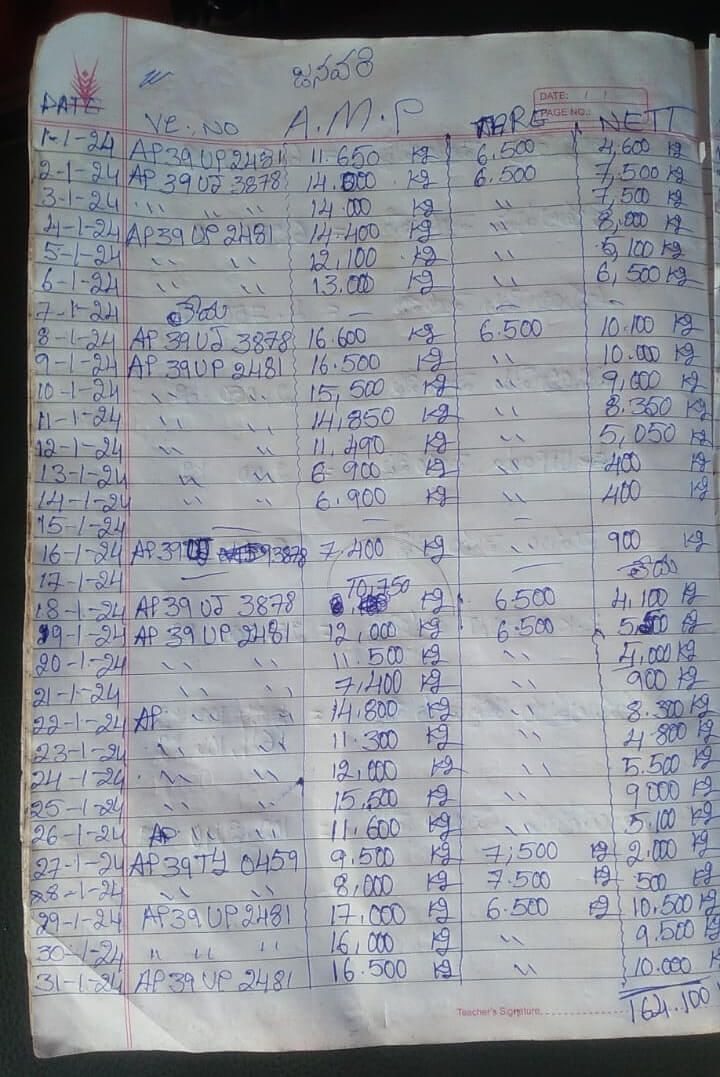 జనవరి
DATE: / /
PAGE NO.:
DATE VE. NO A.M.P TARE NETT
1-1-24 AP 39 UP 2481 11.650 kg 6.500 4,600 kg
2-1-24 AP 39 UJ 3878 14.000 kg 6.500 7,500 kg
3-1-24 '' '' '' 14.000 kg '' 7,500 kg
4-1-24 AP39 UP 2481 14.400 kg '' 8,000 kg
5-1-24 '' '' 12,100 kg '' 5,100 kg
6-1-24 '' '' 13.000 kg '' 6,500 kg
7-1-24 సెలవు — — —
8-1-24 AP 39 UJ 3878 16.600 kg 6.500 10.100 kg
9-1-24 AP 39 UP 2481 16.500 kg '' 10.000 kg
10-1-24 '' '' 15,500 kg '' 9,000 kg
11-1-24 '' '' 14,850 kg '' 8.350 kg
12-1-24 '' '' 11,490 kg '' 5,050 kg
13-1-24 '' '' 6.900 kg '' 400 kg
14-1-24 '' '' 6.900 kg '' 400 kg
15-1-24 — — — —
16-1-24 AP39 3878 7,400 kg '' 900 kg
17-1-24 — — — సెలవు
18-1-24 AP 39 UJ 3878 10,750 kg 6.500 4,100 kg
19-1-24 AP 39 UP 2481 12,000 kg 6.500 5.500 kg
20-1-24 '' '' 11.500 kg '' 4,000 kg
21-1-24 '' '' 7,400 kg '' 900 kg
22-1-24 AP '' '' 14.800 kg '' 8.300 kg
23-1-24 '' '' 11.300 kg '' 4.800 kg
24-1-24 '' '' 12,000 kg '' 5.500 kg
25-1-24 '' '' 15,500 kg '' 9000 kg
26-1-24 AP '' '' 11.600 kg '' 5.100 kg
27-1-24 AP 39 TY 0459 9.500 kg 7,500 kg 2.000 kg
28-1-24 '' '' 8,000 kg 7.500 kg 500 kg
29-1-24 AP 39 UP 2481 17,000 kg 6.500 kg 10.500 kg
30-1-24 '' '' '' 16,000 kg '' 9.500 kg
31-1-24 AP 39 UP 2481 16.500 kg '' 10.000 kg
Teacher's Signature 164.100